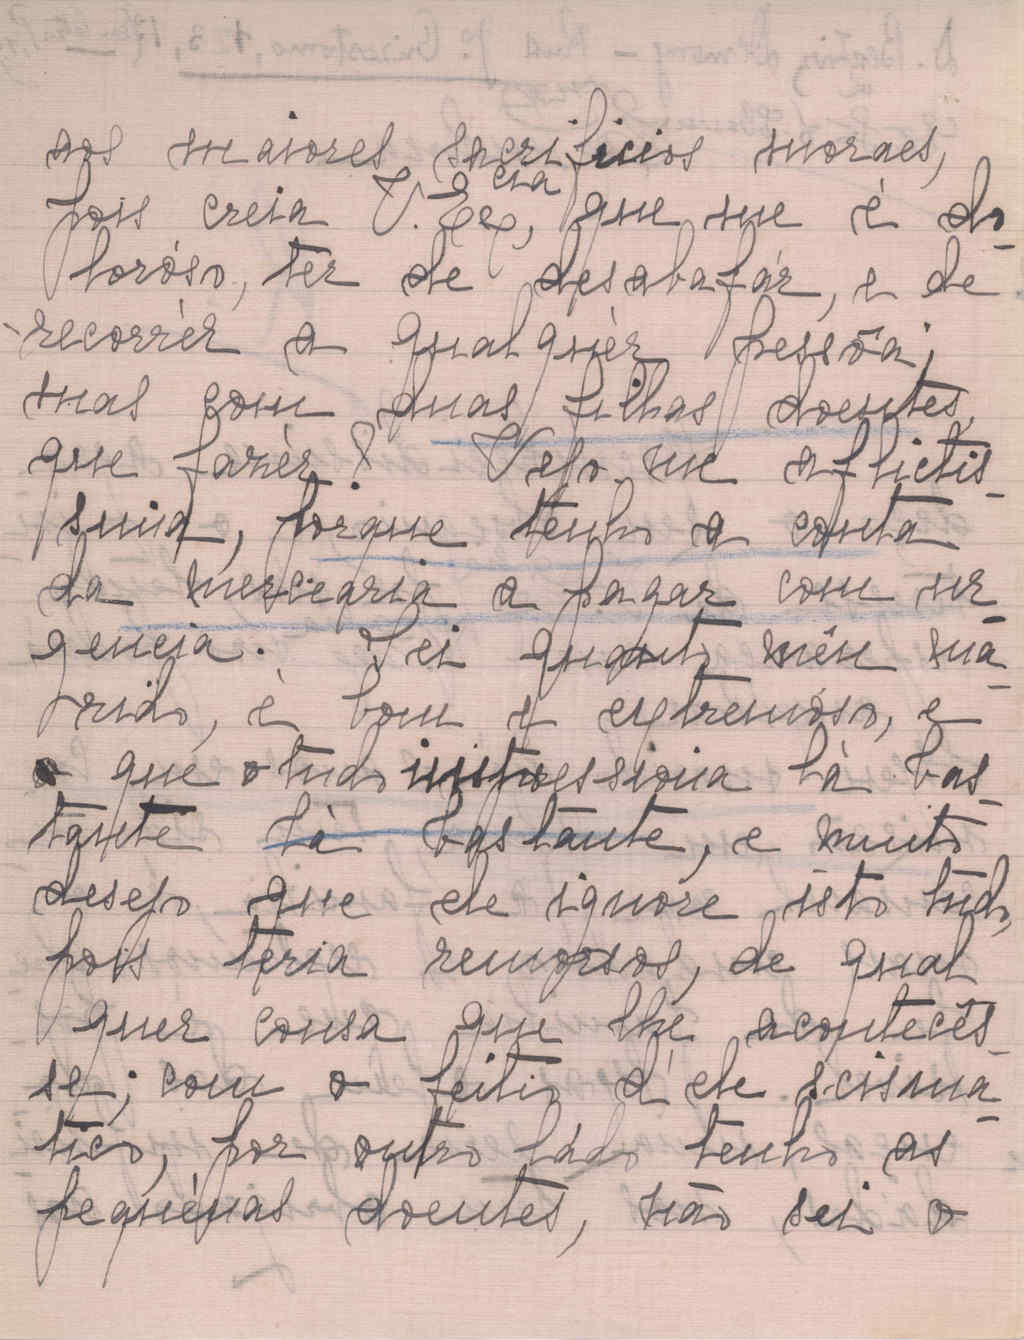 aos maiores sacrificios moraes,
pois creia V. Ex.cia, que me é do-
loròso, ter de desabafár, e de
recorrèr a qualquèr pessôa;
mas com duas filhas doentes,
que fazèr? Vejo-me aflictis-
sima, porque tenho a conta
da mercearia a pagar com ur
gencia. Sei quanto mêu ma-
rido, è bom e extremòso, e
o que o tudo impressiona là bas-
tante là bastante, e muito
desejo que ele ignore isto tudo,
pois teria remorsos, de qual
quer cousa que lhe acontecês-
se; com o feitio d'ele scisma-
tico, por outro lado tenho as
pequènas doentes, não sei o